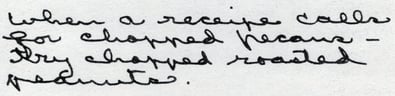 When a receipe calls
for chopped pecans -
try chopped roasted
peanuts.